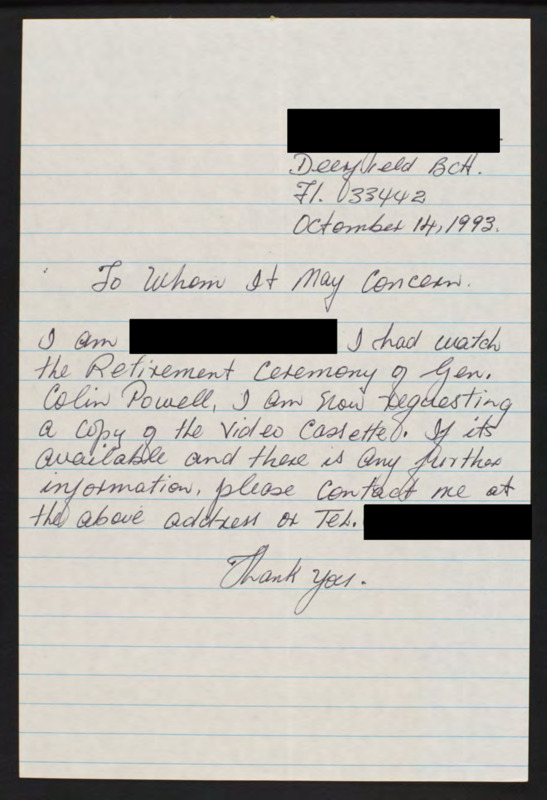 Deerfield Bch.
Fl. 33442
Octomber 14, 1993.
To Whom It May Concern.
I am I had watch
the Retirement Ceremony of Gen.
Colin Powell, I am now requesting
a copy of the video Cassette. If its
available and there is any further
information, please contact me at
the above address or Tel.
Thank you.